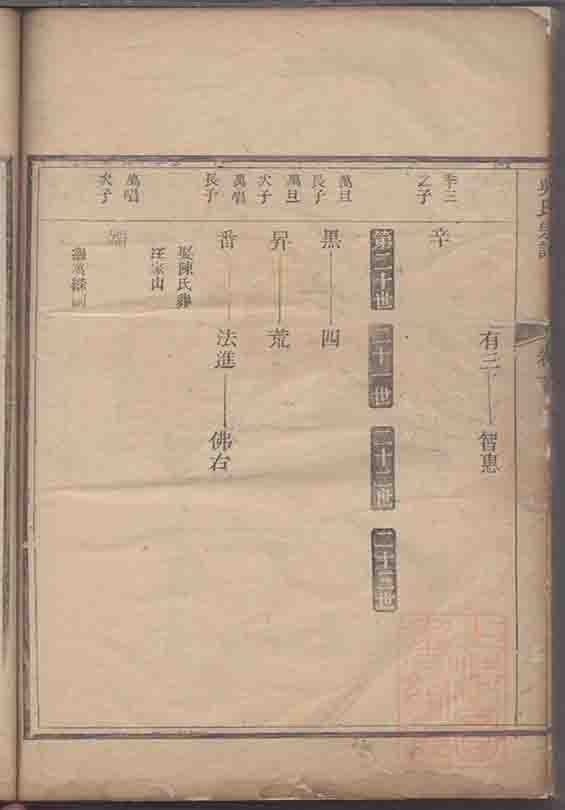 氏宗譜
有三
智惠
季三
之子
辛
第二十世
二十一世
二十二世
二十三世
萬旦
長子
黑
四
萬旦
次子
昇
荒
萬唱
長子
番
法進
佛右
娶陳氏葬
汪家山
萬唱
次子